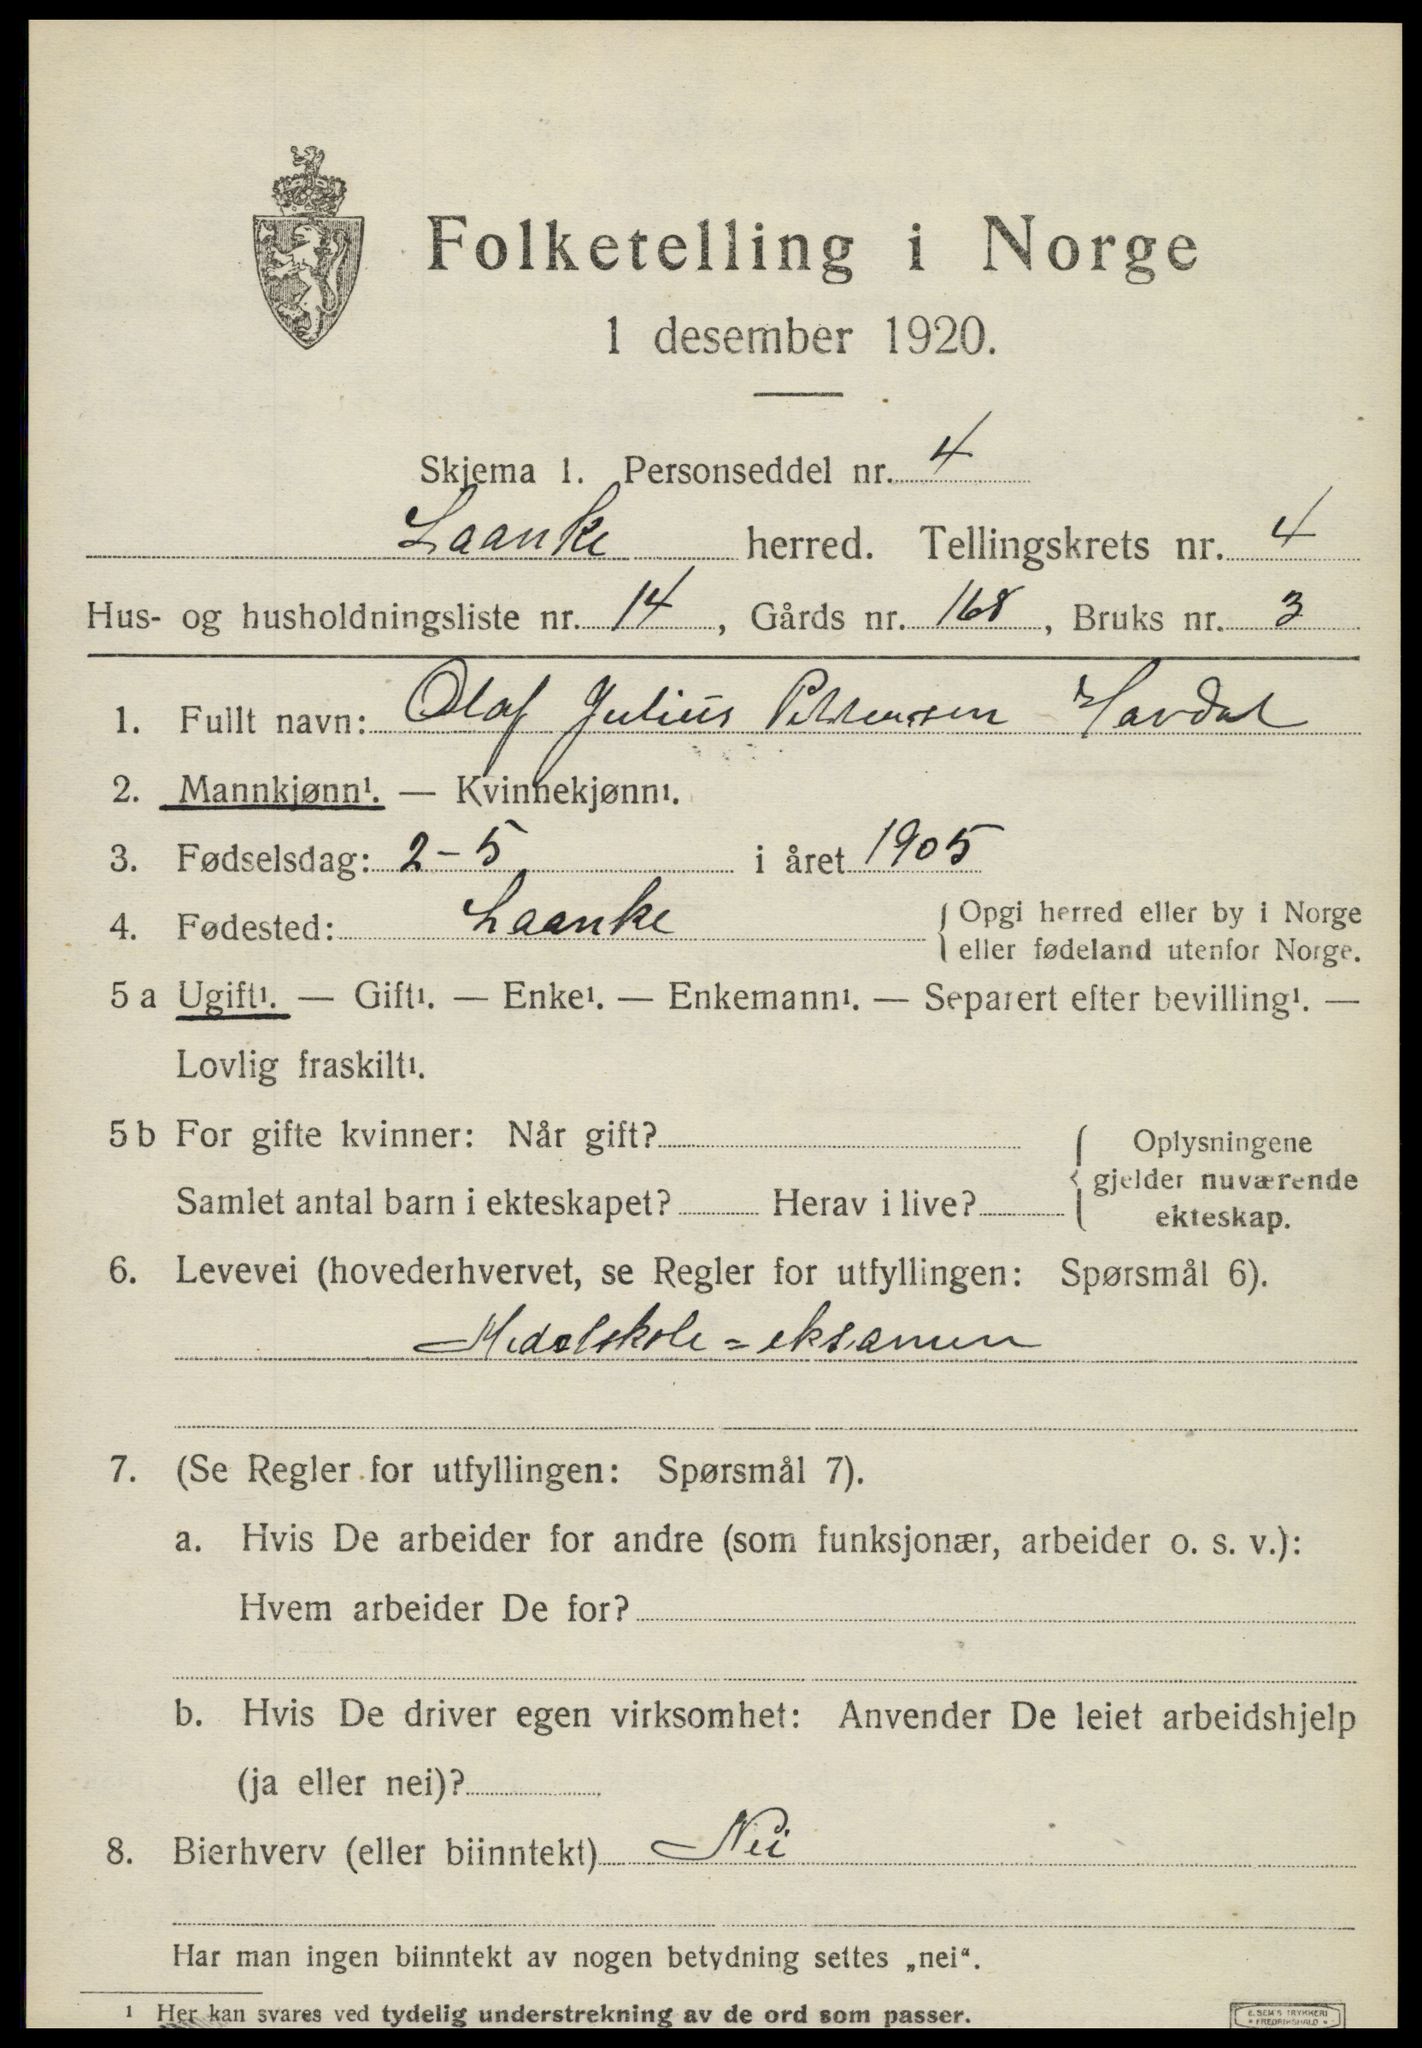 Folketelling i Norge
1 desember 1920.
Skjema 1. Personseddel nr. 4
Laanke herred. Tellingskrets nr. 4
Hus- og husholdningsliste nr. 14, Gårds nr. 168, Bruks nr. 3
1. Fullt navn: Olaf Julius Pettersen Havdal
2. Mannkjønn¹. — Kvinnekjønn¹.
3. Fødselsdag: 2-5 i året 1905
4. Fødested: Laanke { Opgi herred eller by i Norge
eller fødeland utenfor Norge.
5 a Ugift¹. — Gift¹. — Enke¹. — Enkemann¹. — Separert efter bevilling¹. —
Lovlig fraskilt¹.
5 b For gifte kvinner: Når gift? { Oplysningene
Samlet antal barn i ekteskapet? Herav i live? gjelder nuværende
ekteskap.
6. Levevei (hovederhvervet, se Regler for utfyllingen: Spørsmål 6).
Midelskole=eksamen
7. (Se Regler for utfyllingen: Spørsmål 7).
a. Hvis De arbeider for andre (som funksjonær, arbeider o. s. v.):
Hvem arbeider De for?
b. Hvis De driver egen virksomhet: Anvender De leiet arbeidshjelp
(ja eller nei)?
8. Bierhverv (eller biinntekt) Nei
Har man ingen biinntekt av nogen betydning settes „nei“.
¹ Her kan svares ved tydelig understrekning av de ord som passer.
E. SEM'S TRYKKERI
* FREDRIKSHALD *